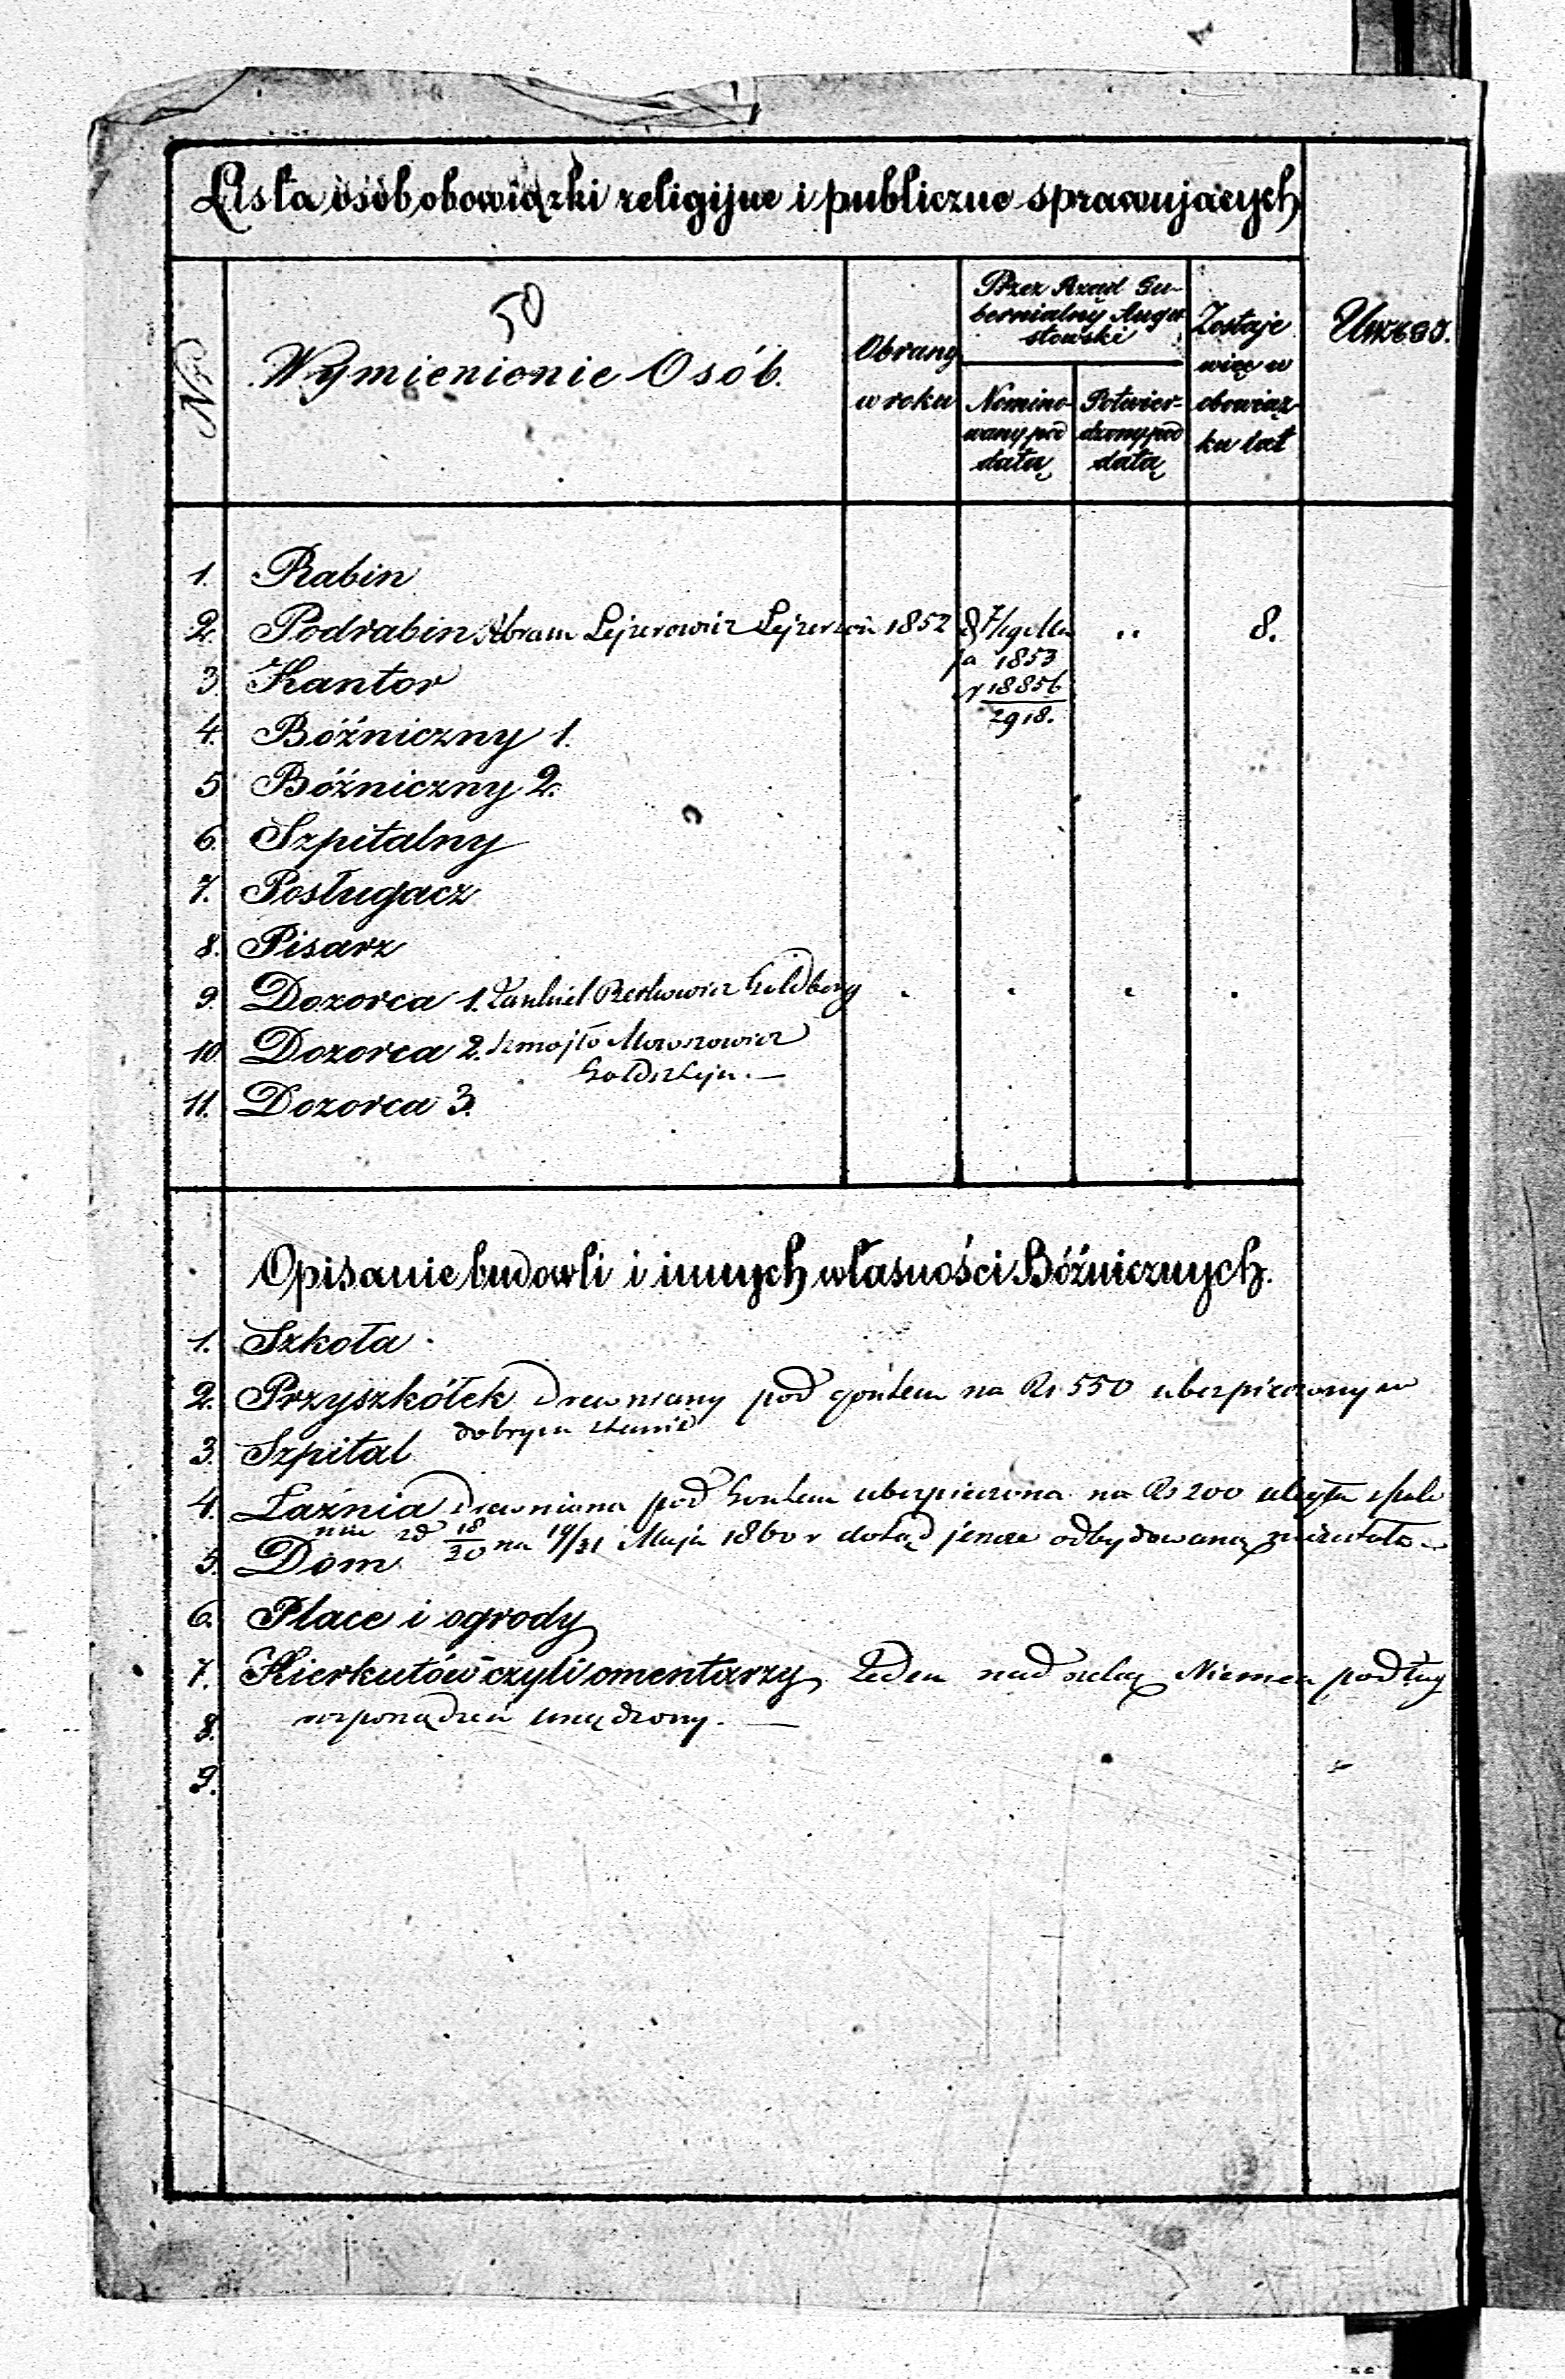 Lista osób obowiązki religijne i publiczne sprawujących
50
Nra
Wymienienie Osób.
Obrany
w roku
Przez Rząd Gu-
bernialny Augu-
stowski
Nomino-
wany pod
datą
Potwier-
dzony pod
datą
Zostaje
więc w
obowiąz-
ku lat
Uwago.
1. Rabin
2. Podrabin Abram Lejzerowicz Lejzerzon 1852 8. 
ja 1853
N 18856
2918.
3. Kantor
4. Bóźniczny 1.
5. Bóźniczny 2.
6. Szpitalny
7. Posługacz
8. Pisarz
9. Dozorca 1. Berkowicz Goldberg
10. Dozorca 2. Szmojło Mowszowicz
Goldsztejn. —
11. Dozorca 3.
Opisanie budowli i innych własności Bóźnicznych.
1. Szkoła
2. Przyszkółek drewniany pod gontem na Rs 550 ubezpieczony w
dobrym stanie
3. Szpital
4. Łaźnia drewniana pod gontem ubezpieczona na Rs 200 uległa spale
niu zd 18/20 na 19/31 Maja 1860 r dotąd jeszcze odbudowaną niezostała
5. Dom
6. Place i ogrody
7. Kierkutów czyli cmentarzy Jeden nad rzeką Niemen podług
rozporządzeń urządzony. —
8.
9.